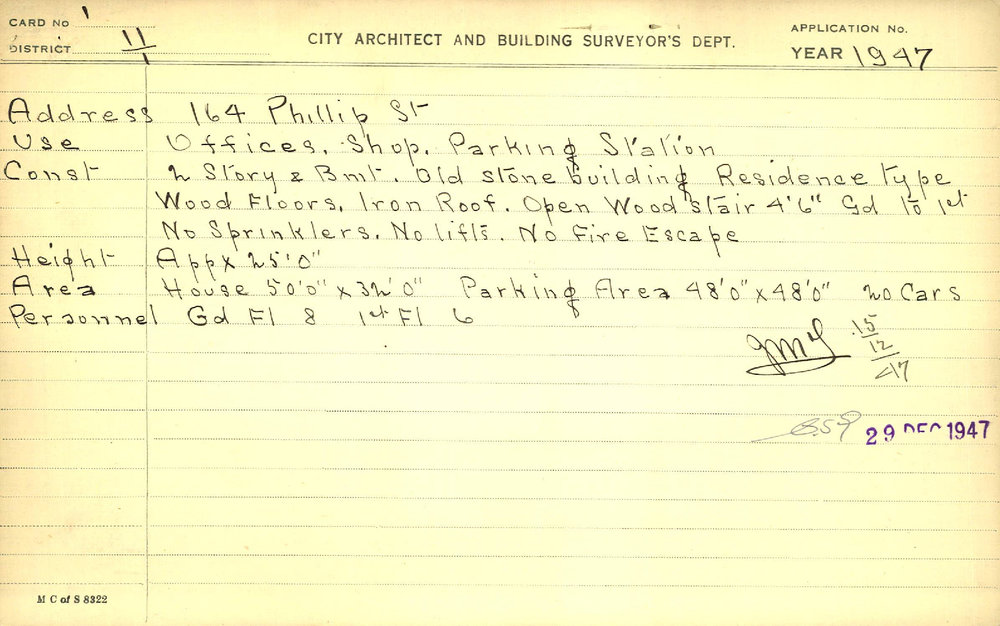 CARD No 1
DISTRICT 11/1
CITY ARCHITECT AND BUILDING SURVEYOR'S DEPT.
APPLICATION No.
YEAR 1947
Address 164 Phillip St
Use Offices. Shop. Parking Station
Const 2 Story & Bmt. Old stone building Residence type
Wood Floors. Iron Roof. Open Wood Stair 4'6" Gd to 1st
No Sprinklers. No lifts. No Fire Escape
Height Appx 25'0"
Area House 50'0" x 32'0" Parking Area 48'0" x 48'0" 20 Cars
Personnel Gd Fl 8 1st Fl 6
15
12
47
29 DEC 1947
M C of S 8322